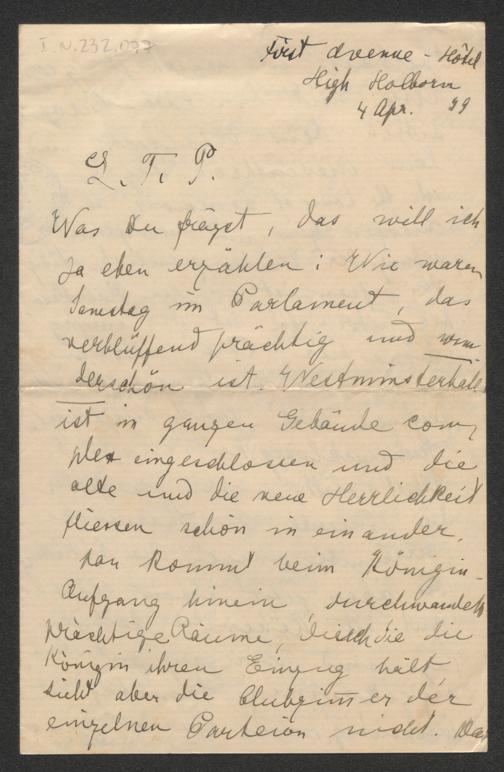 I.N.232.077
First Avenue-Hôtel
High Holborn
4 Apr. 99
L. T. P.
Was Du frägst, das will ich
ja eben erzählen: Wir waren
Samstag im Parlament, das
verblüffend prächtig und wun
derschön ist. Westminsterhall
ist in ganzen Gebäude com,
plex eingeschlossen und die
alte und die neue Herrlichkeit
fliessen schön in einander.
Man kommt beim Königin-
Aufgang hinein, durchwandelt
prächtige Räume, durch die die
Königin ihren Einzug hält
sieht aber die Clubzim̅er der
einzelnen Parteien nicht. Das